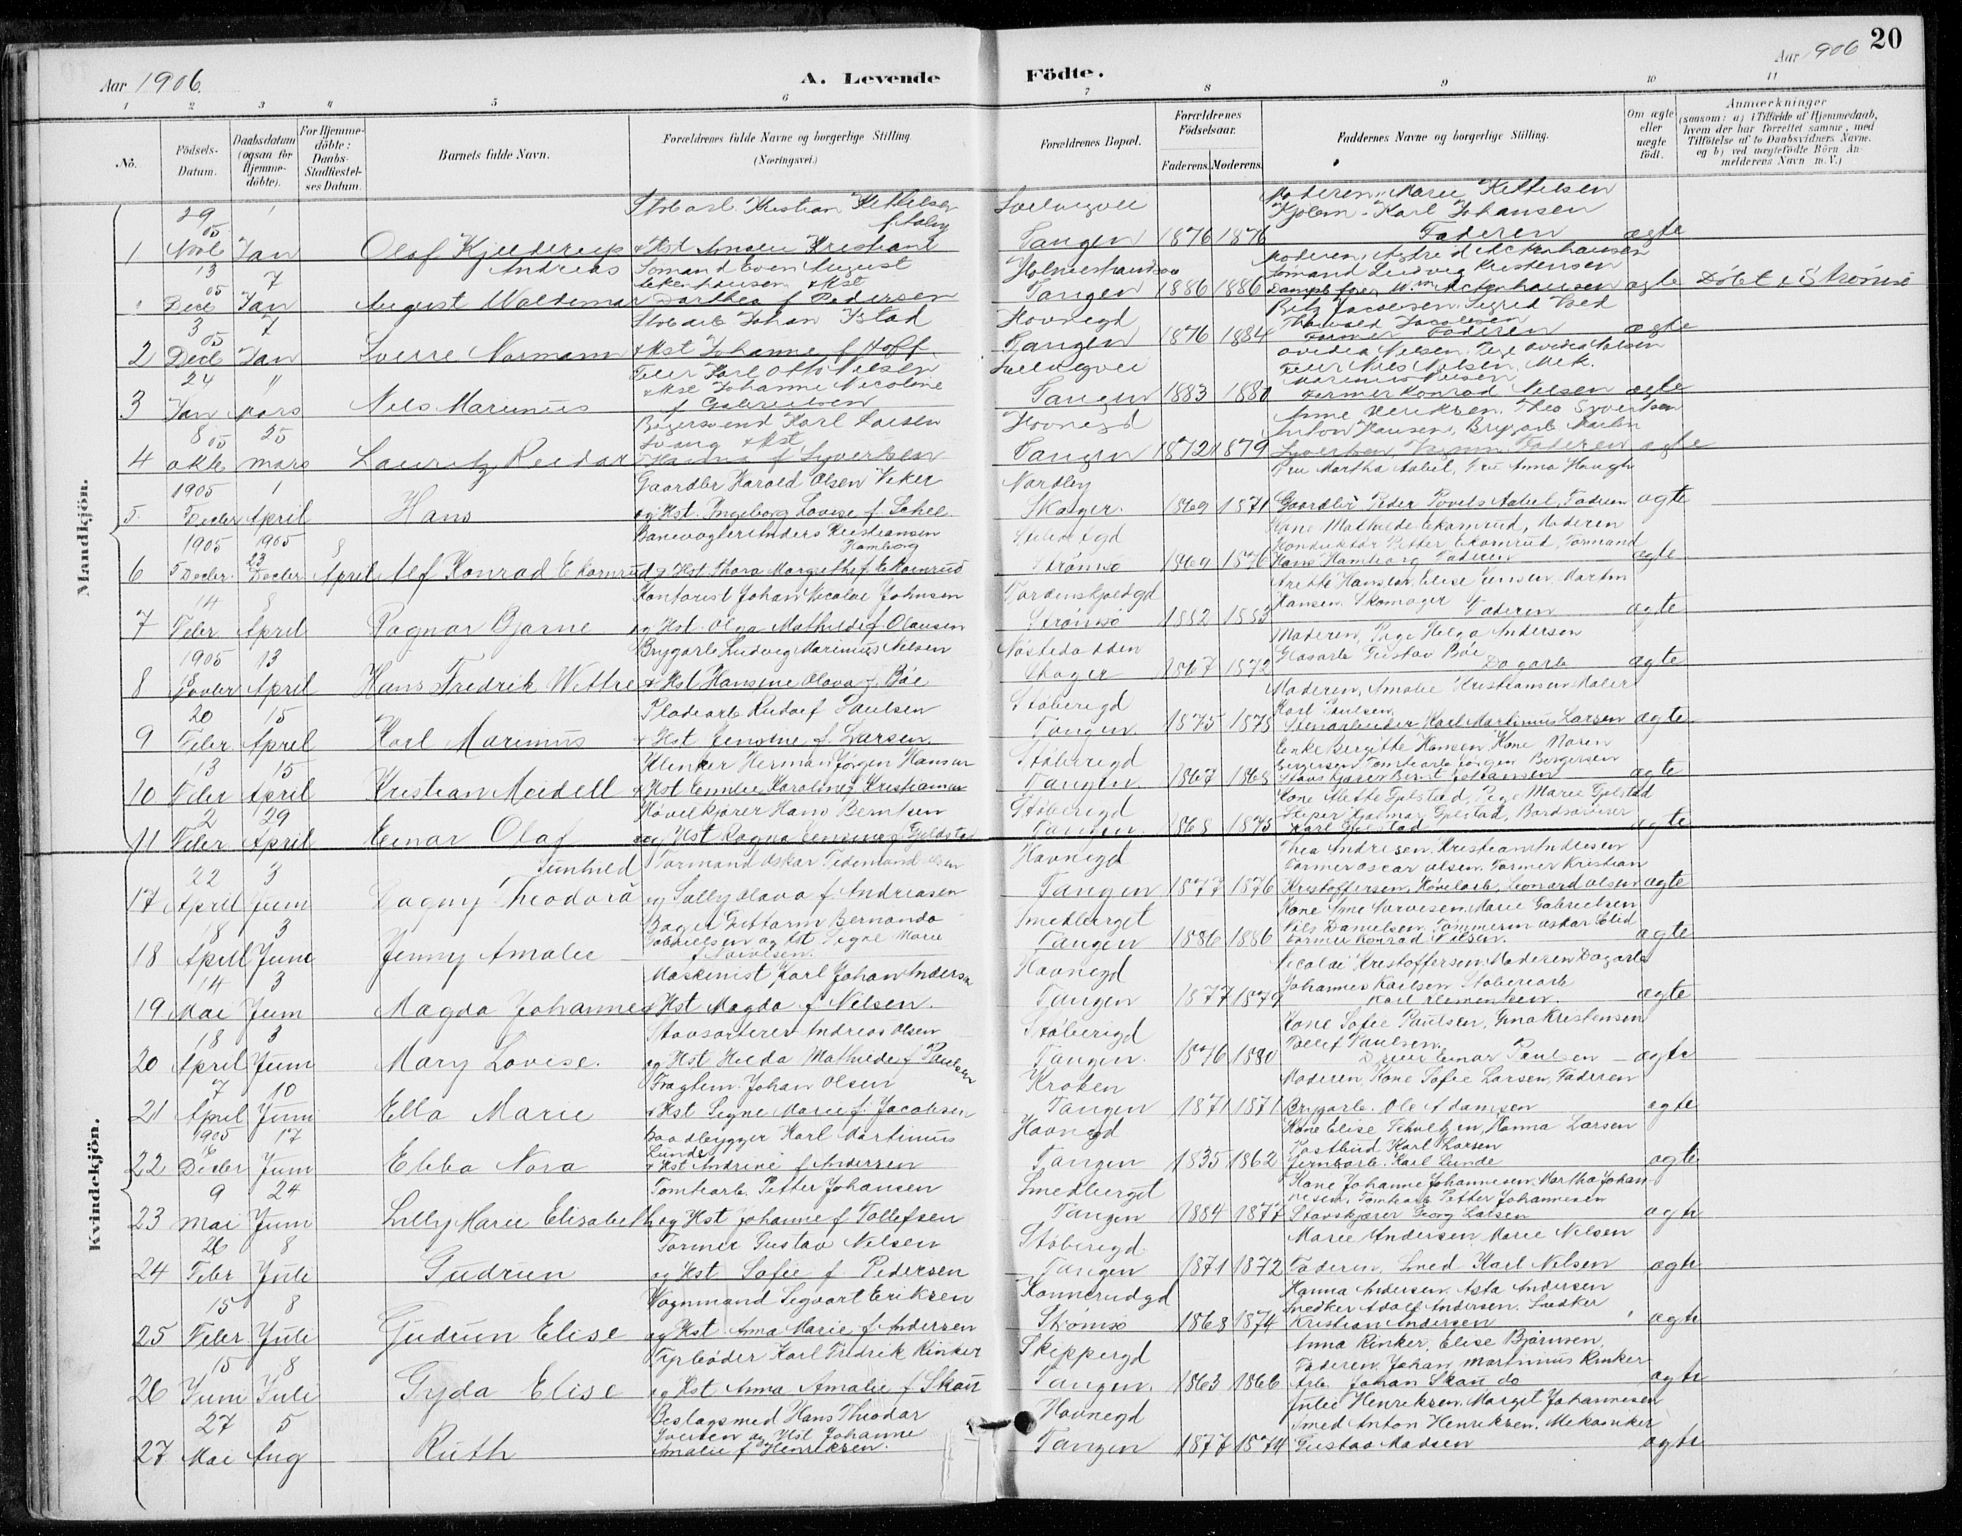 Aar 1906.
A. Levende Födte.
Aar 906
20
1 2 3 4 5 6 7 8 9 10 11
No.
Födsels-Datum.
Daabsdatum (ogsaa for Hjemme-döbte).
For Hjemme-döbte: Daabs-Stadfæstel-ses Datum.
Barnets fulde Navn.
Forældrenes fulde Navne og borgerlige Stilling (Næringsvei.)
Forældrenes Bopæl.
Forældrenes Födselsaar.
Faderens. Moderens.
Faddernes Navne og borgerlige Stilling.
Om ægte eller uægte födt.
Anmærkninger
(saasom: a) i Tilfælde af Hjemmedaab, hvem der har forrettet samme, med Tilföielse af to Daabsvidners Navne, og b) ved uægtefödte Börn Anmelderens Navn m. V.)
Mandkjön.
1 29 05 Novb 1 Jan Olaf Kjelderup Andreas
Kristian Kittilsen
& Hst Kristiane
Svelvigvei Tangen 1876 1876
Moderen, Marie Kittilsen
Karl Johansen
Faderen ægte
13 05 Decb 7 Jan August Waldemar
Sömand Even August
Ackenhausen & Hst
Dorthea f Pedersen
Tangen 1886 1886
Moderen, Ackenhausen
Sömand Ludvig Kristensen
Ackenhausen ægte Döbt i Strömsö
2 3 05 Decb 7 Jan Sverre Normann
Johan Ystad
& Hst Johanne f Hoff
Havnegd Tangen 1876 1884
Jacobsen, Sigrid
Jacobsen
Faderen ægte
3 24 Jan 11 Mars Nils Marinius
Feier Karl Otto Nilsen
& Hst Johanne Nicoline
f Gabrielsen
Svelvigvei Tangen 1883 1880
Ovidia Nilsen, Pige Ovidia Nilsen
Feier Nils Nilsen, Mek.
Marinius Nilsen
Former Konrad Nilsen ægte
4 8 05 Okt 25 Mars Lauritz Reidar
Karl Larsen
Svang & Hst
Hanna f Syvertsen
Havnegd Tangen 1872 1879
Anne Henriksen, Thea Syvertsen
Anton Hansen, Brygarb Martin
Syvertsen, Faderen ægte
5. 1905 Decbr 1 April Hans
Gaardbr Harald Olsen Viker
og Hst. Ingeborg Lovise f Schee.
Nordby Skoger. 1869 1871
Fru Martha Aabel, Fru Anna Haugh
Gaardbr Peder Povels Aabel, Faderen ægte
6 1905 5 Decbr. 1905 23 Decbr 8 April Alf Konrad Ekornrud
Banevogter Anders Kristiansen
Hamborg
og Hst Thora Margrethe f Ekornrud
Strömsö 1869 1876
Kone Mathilde Ekornrud, Moderen
Konduktör Petter Ekornrud, Formand
Hans Hamborg Faderen ægte
7 14 Febr 8 April Ragnar Bjarne
Kontorist Johan Nicolai Johnsen
og Hst. Olga Mathilde f. Olausen
Tordenskjoldgd Strömsö 1882 1883
Hansen, Skomager Faderen ægte
8 1905 8 Novbr 13 April Hans Fredrik Withe
Brygarb Ludvig Marinius Nilsen
& Hst Hansine Olava f. Böe
Nöstedodden Skoger 1867 1872
Moderen, Pige Helga Andersen
Glasarb Gustav Böe
Dagarb ægte
9 20 Febr 15 April Karl Marinius
Pladearb Rudolf Paulsen
& Hst Jensine f. Larsen.
Stöberigd Tangen. 1875 1875
Moderen, Amalie Kristiansen Maler
Karl Paulsen,
Stenarbeider Karl Martinius Larsen ægte
10 13 Febr 15 April Kristian Meidell
Klinker Herman Jörgen Hansen
& Hst Emilie Karoline f Kristiansen
Stöberigd Tangen. 1867 1868
Enke Bergitte Hansen, Kone Maren
Bergersen Tomtearb Jörgen Bergersen
Stavskjærer Bernt Estiansen ægte
11 2 Febr 29 April Einar Olaf
Hövelkjörer Hans Berntsen
og Hst Ragna f Gjelstad
Stöberigd Tangen. 1868 1875
Kone Mette Gjelstad, Pige Marie Gjelstad
Sliper Hjalmar Gjelstad, Bordskriver
Karl Gjelstad ægte
Kvindekjön.
17 22 April 3 Juni Dagny Theodora Gunhild
Formand Oskar Tidemand Olsen
og Sally Olava f. Andreasen
Havnegd Tangen 1877 1876
Thea Andresen, Kristian Andresen
Former Oscar Olsen, Former Kristian
Kristoffersen, Hövelarb, Leonard Olsen ægte
18 18 April 3 Juni Jenny Amalie
Bager Guttorm Bernando
Gabrielsen og Hst Signe Marie
f Narvesen.
Smedberget Tangen 1886 1886
Kone Narvesen, Marie Gabrielsen
Nils Danielsen, Tömmerm Oskar Elid
Former Konrad Nilsen. ægte
19 14 Mai 3 Juni Magda Johanne
Maskinist Karl Johan Andersen
& Hst Magda f Nilsen
Havnegd Tangen 1877 1879
Nicolai Kristoffersen Moderen Dagarb
Johannes Karlsen Stöberiarb
Karl Klementsen. ægte
20 18 April 3 Juni Mary Lovise.
Stavsorterer Andreas Olsen
og Hst Hilda Mathilde f Paulsen
Stöberigd Tangen. 1876 1880
Kone Sofie Paulsen, Gina Kristensen
Detlef Paulsen.
Einar Paulsen ægte
21 7 April 10 Juni Ella Marie
Fragtem. Johan Olsen
& Hst Signe Marie f. Jacobsen
Kroken Tangen 1871 1871
Moderen, Kone Sofie Larsen, Faderen
Brygarb. Ole Adamsen ægte
22 1905 6 Decbr 17 Juni Ebba Nora
Baadbygger Karl Martinius
Lunde
& Hst Andrine f Andersen
Havnegd Tangen 1835 1862
Kone Elise Schultzen, Hanna Larsen
Postbud Karl Larsen
Jernbarb. Karl Lunde ægte
23 9 Mai 24 Juni Lilly Marie Elisabeth
Tomtearb. Petter Johansen
og Hst Johanne f Tollefsen
Smedberget Tangen 1884 1877
Kone Johanne Johannesen, Martha Johan-
nesen, Tomtearb Petter Johannesen
Stavskjærer Georg Larsen ægte
24 26 Febr 8 Juli Gudrun
Former Gustav Nilsen
og Hst Sofie f. Pedersen
Stöberigd Tangen 1871 1872
Marie Andersen, Marie Nilsen
Faderen, Smed Karl Nilsen ægte
25 15 Febr 8 Juli Gudrun Elise
Vognmand Sigvart Eriksen
og Hst. Anna Marie f. Andersen
Konnerudgd Strömsö 1868 1874
Hanna Andersen, Asta Andersen
Snedker Adolf Andersen, Snedker
Kristian Andersen ægte
26 15 Juni 8 Juli Gyda Elise
Fyrböder Karl Fredrik Rinker
og Hst Anna Amalie f Skau
Skippergd Tangen. 1863 1866
Anna Rinker, Elise Björnsen,
Faderen, Johan Martinius Rinker
Arb. Johan Skau do ægte
27 27 Mai 5 Aug Ruth
Beslagsmed Hans Theodor
Iversen og Hst Johanne
Amalie f Henriksen.
Havnegd Tangen 1877 1874
Julie Henriksen, Margit Johannesen
Smed Anton Henriksen, Mekaniker
Gustav Madsen ægte